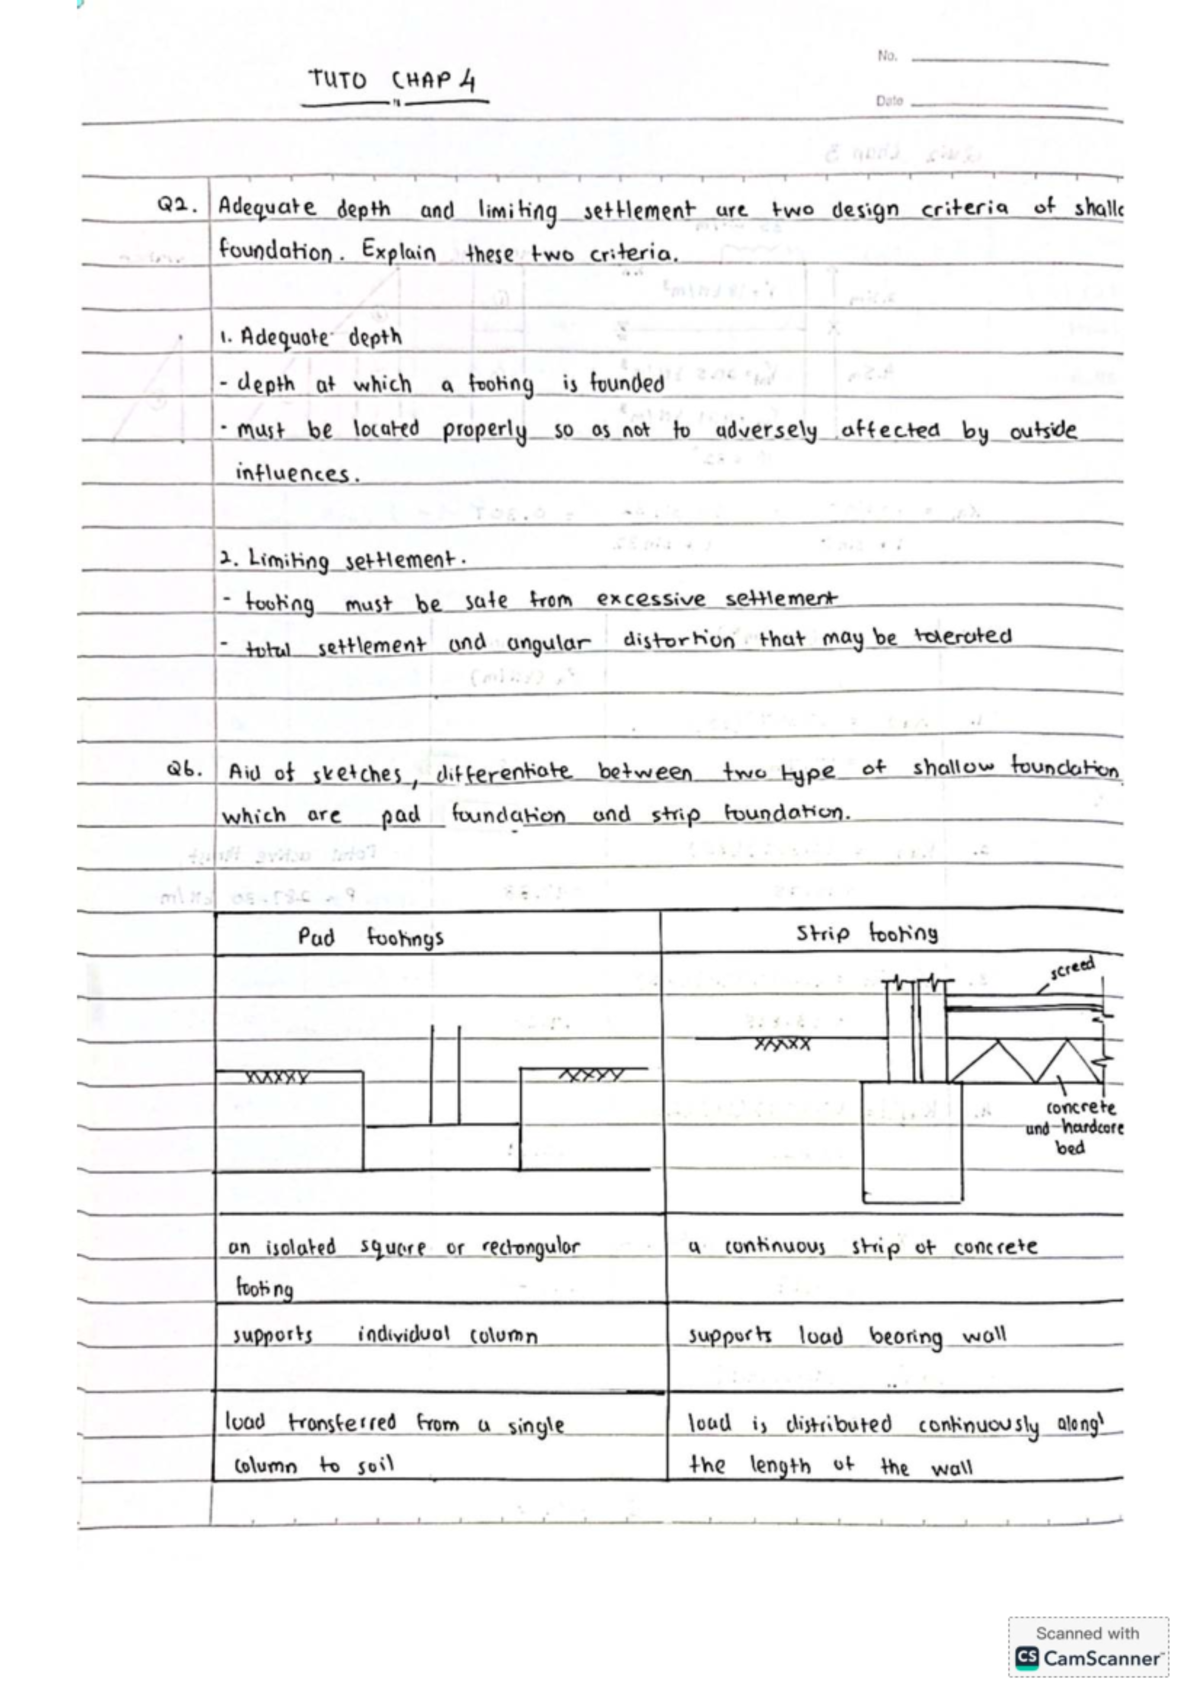 No.
TUTO CHAP 4
Date
Q2. Adequate depth and limiting settlement are two design criteria of shallo
foundation. Explain these two criteria.
1. Adequate depth
- depth at which a footing is founded
- must be located properly so as not to adversely affected by outside
influences.
2. Limiting settlement.
- footing must be safe from excessive settlement
- total settlement and angular distortion that may be tolerated
Q6. Aid of sketches, differentiate between two type of shallow foundation
which are pad foundation and strip foundation.
Pad footings
Strip footing
screed
concrete
and hardcore
bed
an isolated square or rectangular
footing
a continuous strip of concrete
supports individual column
supports load bearing wall
load transferred from a single
column to soil
load is distributed continuously along
the length of the wall
Scanned with
CS CamScanner